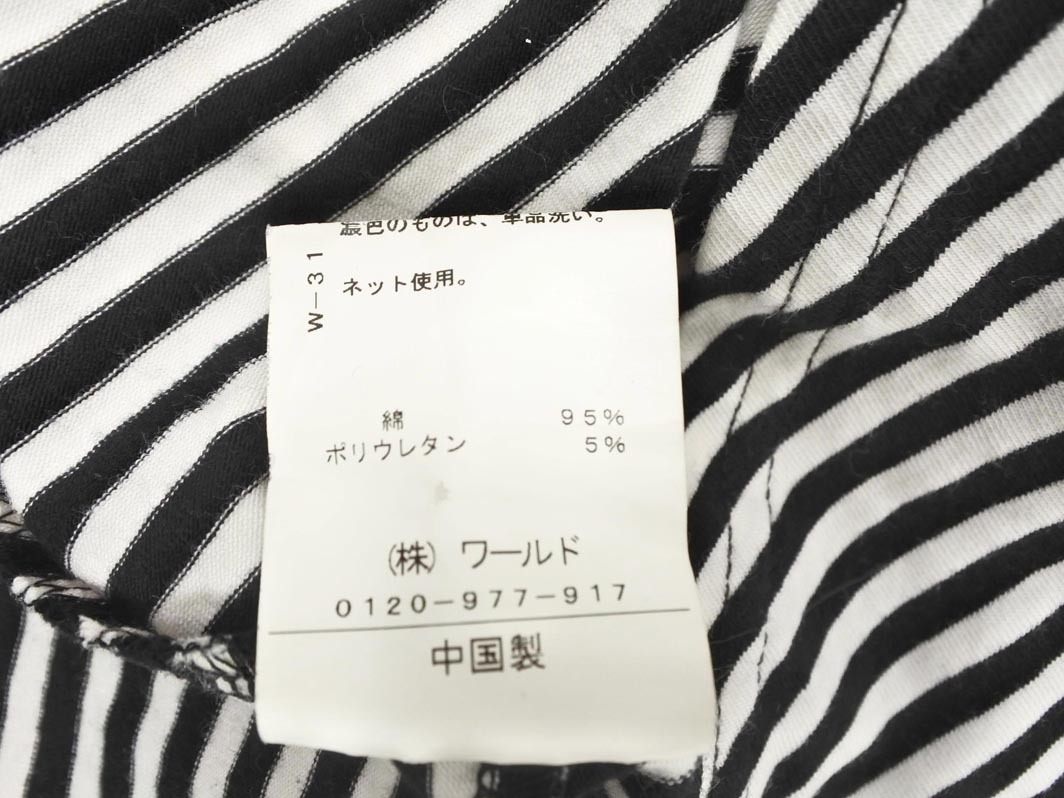 濃色のものは、単品洗い。
W-31
ネット使用。
綿 95%
ポリウレタン 5%
(株) ワールド
0120-977-917
中国製